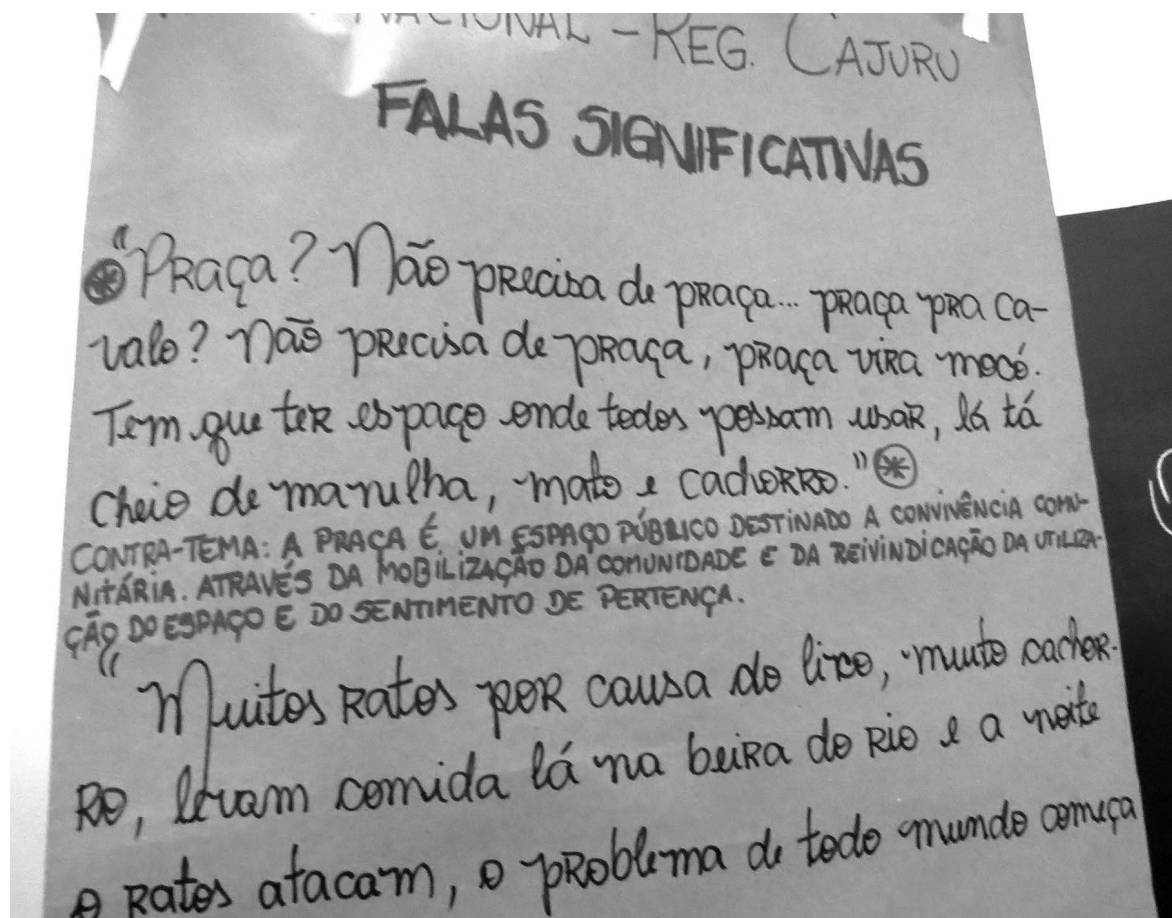 NACIONAL - REG. CAJURU
FALAS SIGNIFICATIVAS
"Praça? Não precisa de praça... praça pra ca-
valo? Não precisa de praça, praça vira mocó.
Tem que ter espaço onde todos possam usar, lá tá
cheio de manulha, mato e cachorro."
CONTRA-TEMA: A PRAÇA É UM ESPAÇO PÚBLICO DESTINADO A CONVIVÊNCIA COMU-
NITÁRIA. ATRAVÉS DA MOBILIZAÇÃO DA COMUNIDADE E DA REIVINDICAÇÃO DA UTILIZA-
ÇÃO DO ESPAÇO E DO SENTIMENTO DE PERTENÇA.
"Muitos ratos por causa do lixo, muito cachor-
ro, levam comida lá na beira do rio e a noite
o ratos atacam, o problema de todo mundo começa